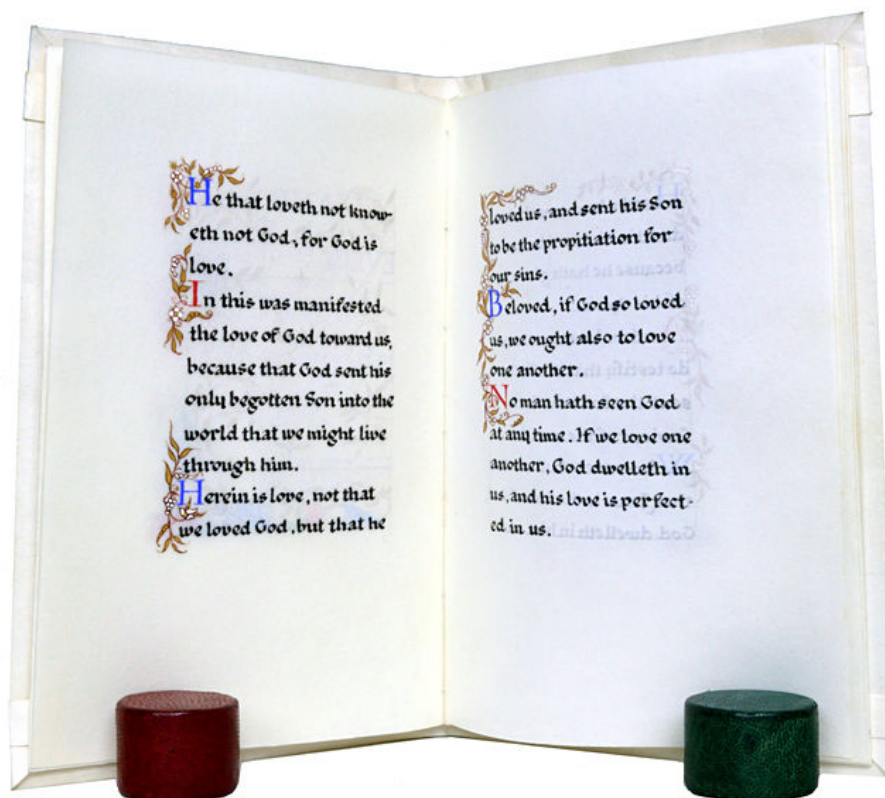 He that loveth not know-
eth not God, for God is
love.
In this was manifested
the love of God toward us,
because that God sent his
only begotten Son into the
world that we might live
through him.
Herein is love, not that
we loved God, but that he
loved us, and sent his Son
to be the propitiation for
our sins.
Beloved, if God so loved
us, we ought also to love
one another.
No man hath seen God
at any time. If we love one
another, God dwelleth in
us, and his love is perfect-
ed in us.